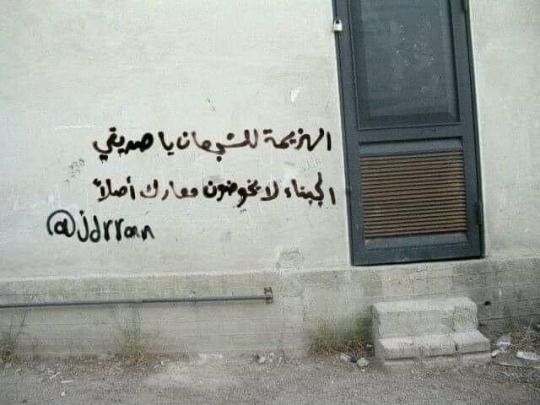 الهزيمة للشجعان يا صديقي
الجبناء لا يخوضون معارك أصلاً
@jdrran